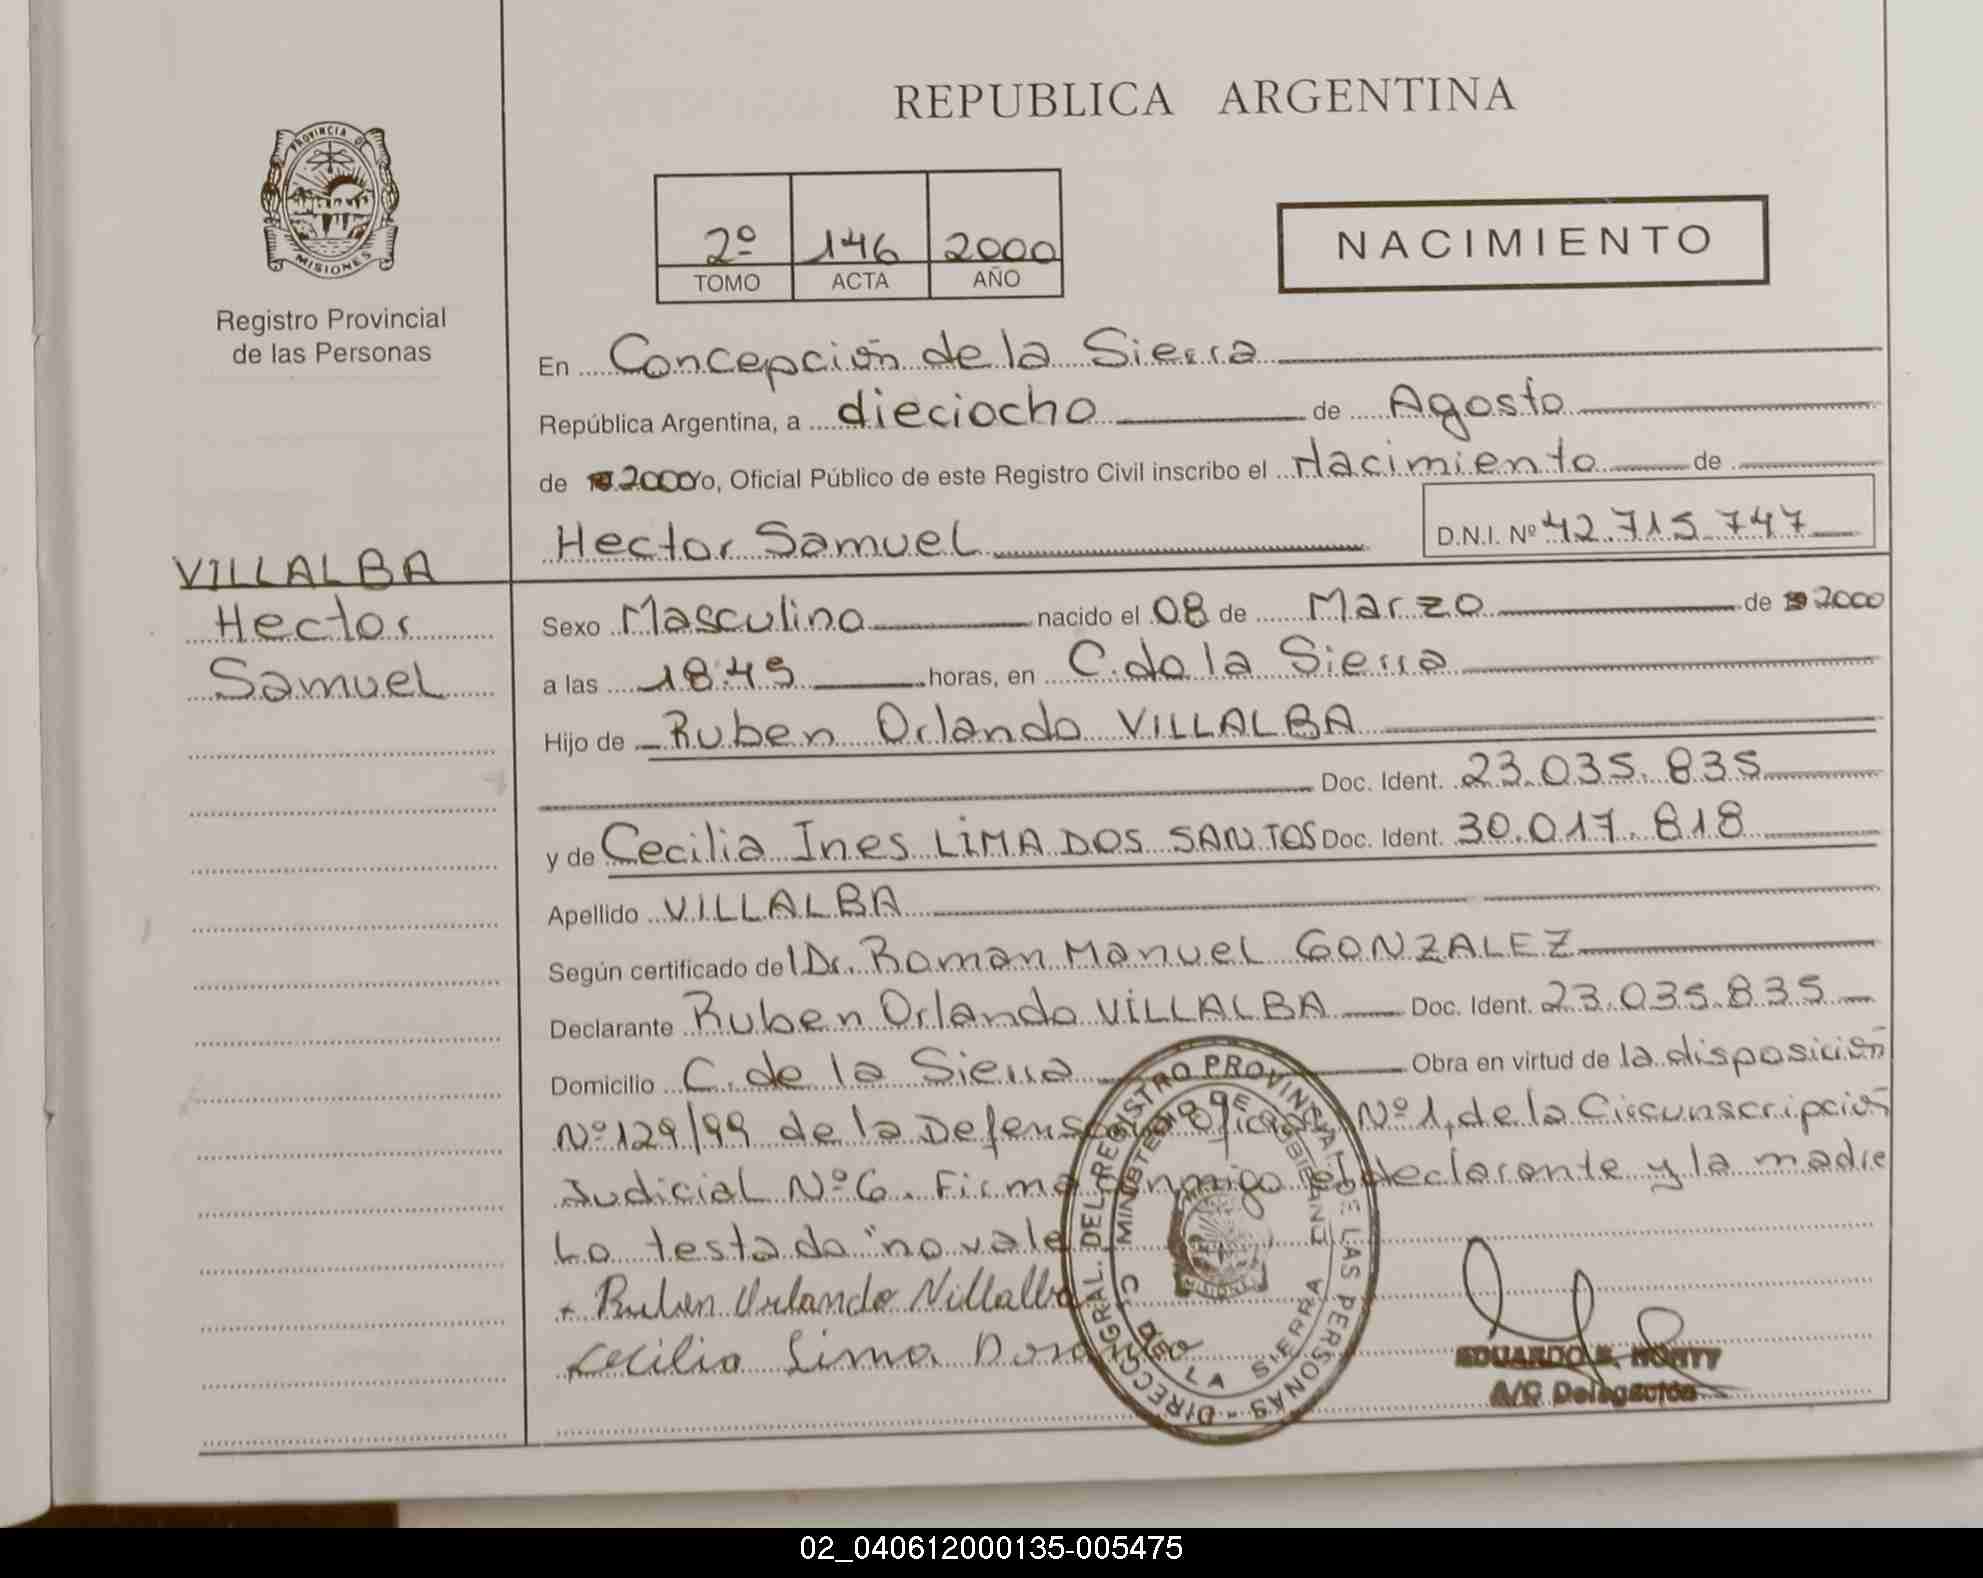 REPUBLICA ARGENTINA
PROVINCIA DE
MISIONES
Registro Provincial
de las Personas
2º 146 2000
TOMO ACTA AÑO
NACIMIENTO
En Concepción de la Sierra
República Argentina, a dieciocho de Agosto
de 2000 yo, Oficial Público de este Registro Civil inscribo el Nacimiento de
Hector Samuel D.N.I. Nº 42.715.747
VILLALBA
Hector
Samuel
Sexo Masculino nacido el 08 de Marzo de 2000
a las 18:45 horas, en C. de la Sierra
Hijo de Ruben Orlando VILLALBA
Doc. Ident. 23.035.835
y de Cecilia Ines LIMA DOS SANTOS Doc. Ident. 30.017.818
Apellido VILLALBA
Según certificado del Dr. Roman Manuel GONZALEZ
Declarante Ruben Orlando VILLALBA Doc. Ident. 23.035.835
Domicilio C. de la Sierra Obra en virtud de la disposición
Nº 129/99 de la Defensoria Oficial Nº 1, de la Circunscripción
Judicial Nº 6. Firma conmigo el declarante y la madre
Lo testado "no vale
Ruben Orlando Villalba
Cecilia Lima Dos
DIRECC. GRAL. DEL REGISTRO PROVINCIAL DE LAS PERSONAS
MINISTERIO DE GOBIERNO
C. DE LA SIERRA
EDUARDO
A/C Delegación
02_040612000135-005475